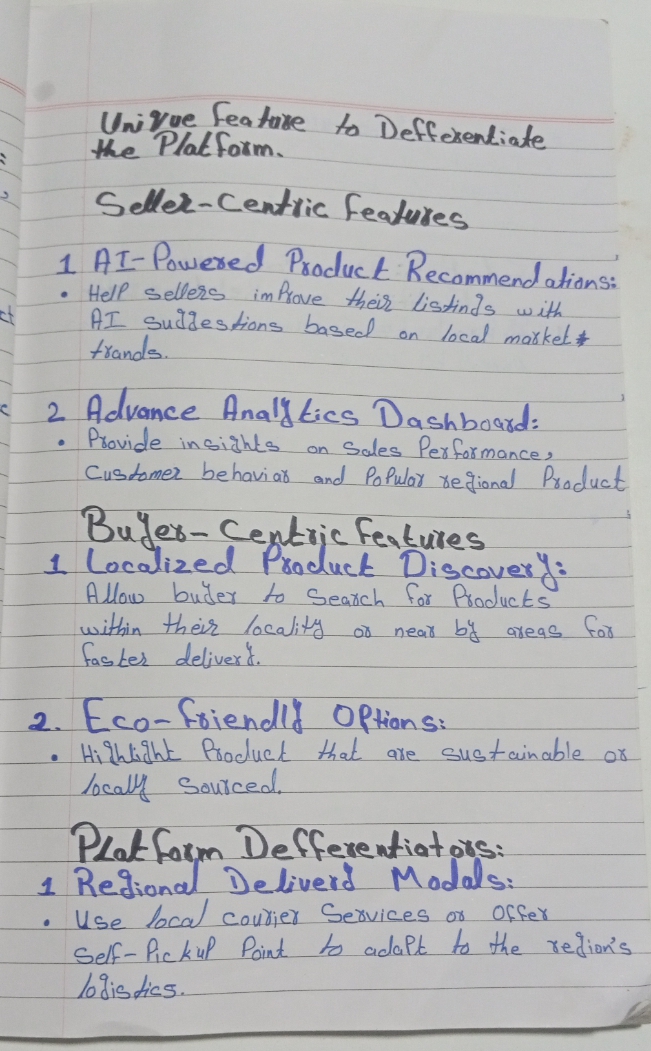 Unique Feature to Defferentiate
the Platform.
Seller-Centric Features
1 AI-Powered Product Recommendations:
• Help sellers improve their listings with
AI suggestions based on local market
trands.
2 Advance Analytics Dashboard:
• Provide insights on Sales Performance,
Customer behavior and Popular regional Product
Buyer-Centric Features
1 Localized Product Discovery:
Allow buyer to Search for Products
within their locality or near by areas for
faster delivery.
2. Eco-friendly Options:
• Highlight Product that are sustainable or
locally Sourced.
Platform Defferentiators:
1 Regional Delivery Modals:
• Use local courier Services or Offer
Self-Pickup Point to adapt to the region's
logistics.